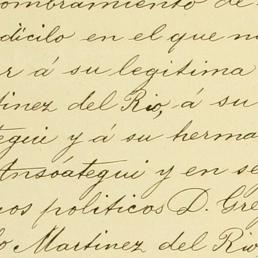 ombramiento de
dicilo en el que no
r á su legitima
tinez del Rio, á su
egui y á su herma
Ansóategui y en se
cos politicos D. Gre
lo Martinez del Rio,